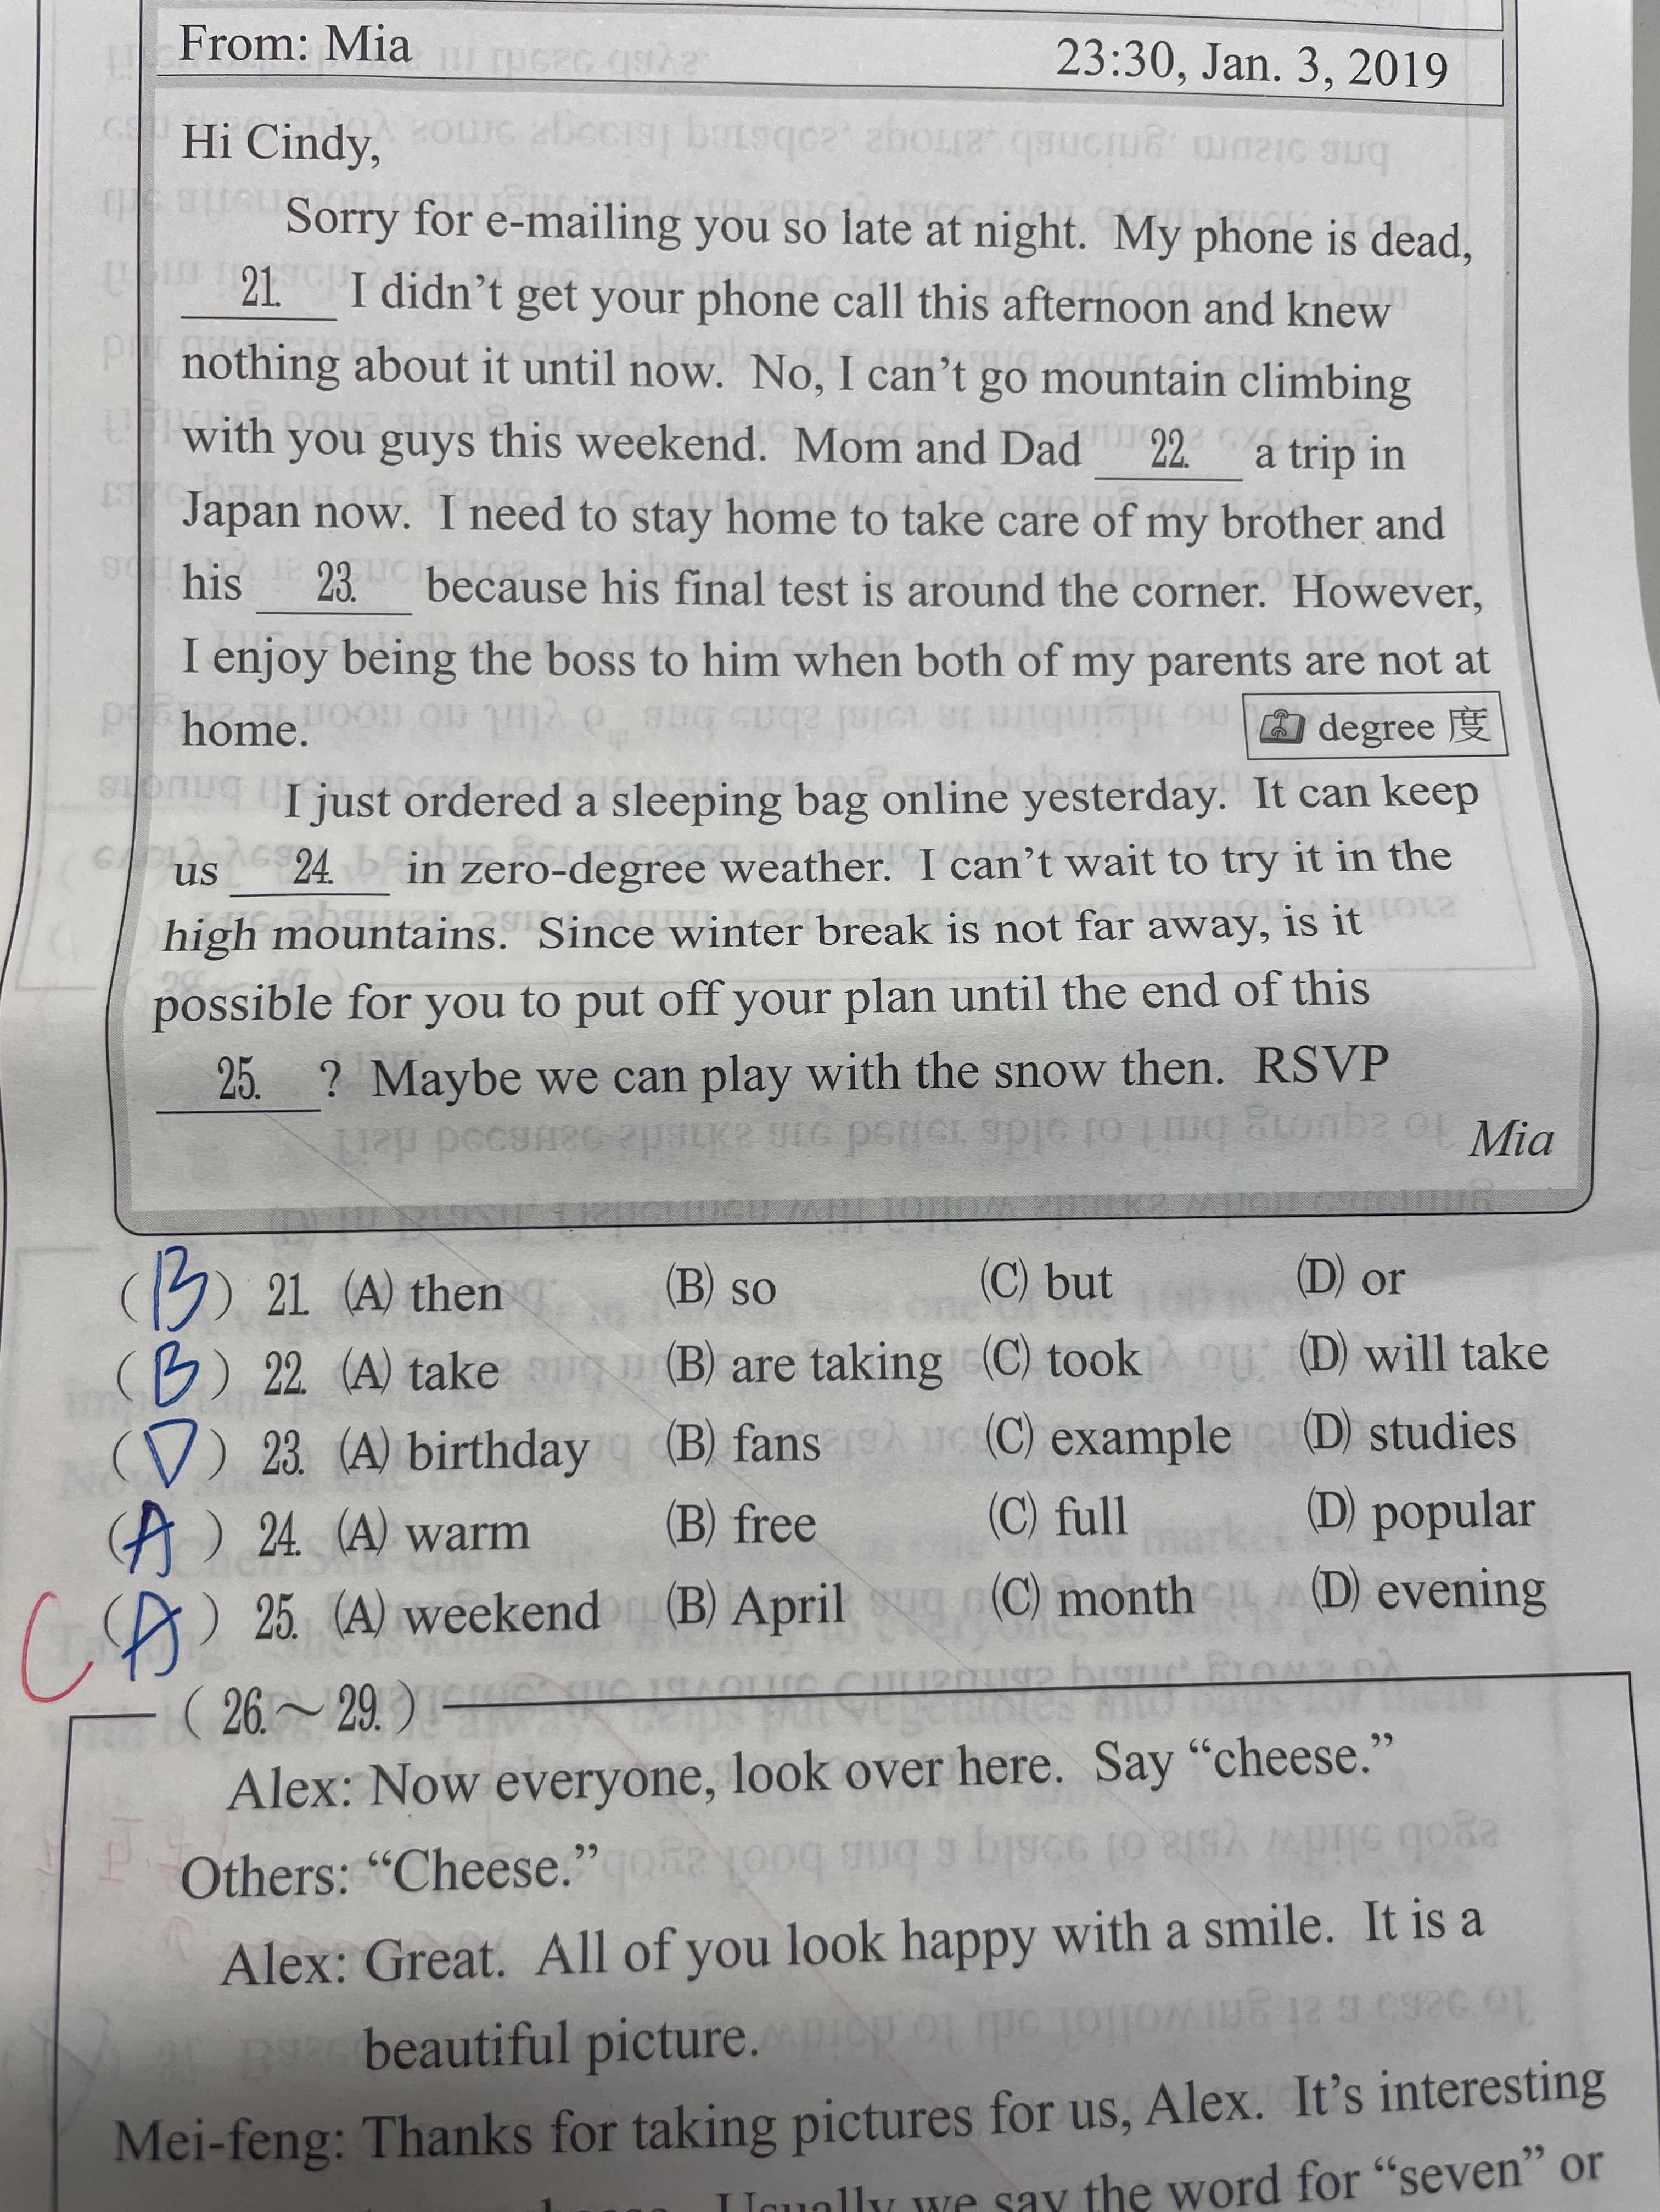 From: Mia 23:30, Jan. 3, 2019
Hi Cindy,
Sorry for e-mailing you so late at night. My phone is dead,
21. I didn't get your phone call this afternoon and knew
nothing about it until now. No, I can't go mountain climbing
with you guys this weekend. Mom and Dad 22. a trip in
Japan now. I need to stay home to take care of my brother and
his 23. because his final test is around the corner. However,
I enjoy being the boss to him when both of my parents are not at
home.
degree 度
I just ordered a sleeping bag online yesterday. It can keep
us 24. in zero-degree weather. I can't wait to try it in the
high mountains. Since winter break is not far away, is it
possible for you to put off your plan until the end of this
25. ? Maybe we can play with the snow then. RSVP
Mia
(B) 21. (A) then (B) so (C) but (D) or
(B) 22. (A) take (B) are taking (C) took (D) will take
(D) 23. (A) birthday (B) fans (C) example (D) studies
(A) 24. (A) warm (B) free (C) full (D) popular
C (A) 25. (A) weekend (B) April (C) month (D) evening
(26.~29.)
Alex: Now everyone, look over here. Say “cheese.”
Others: “Cheese.”
Alex: Great. All of you look happy with a smile. It is a
beautiful picture.
Mei-feng: Thanks for taking pictures for us, Alex. It's interesting
Usually we say the word for “seven” or